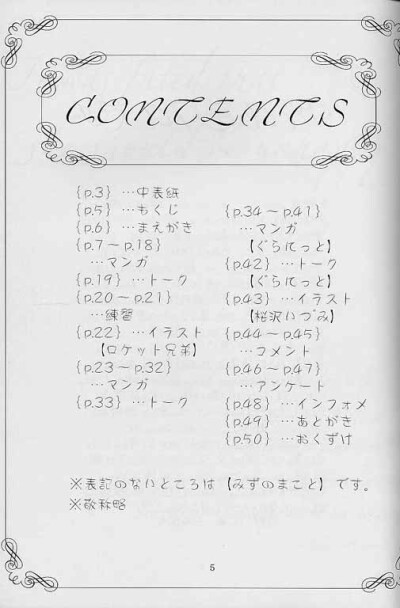 CONTENTS
{p.3} …中表紙
{p.5} …もくじ
{p.6} …まえがき
{p.7～p.18}
…マンガ
{p.19} …トーク
{p.20～p.21}
…練習
{p.22} …イラスト
【ロケット兄弟】
{p.23～p.32}
…マンガ
{p.33} …トーク
{p.34～p.41}
…マンガ
【ぐらにっと】
{p.42} …トーク
【ぐらにっと】
{p.43} …イラスト
【桜沢いづみ】
{p.44～p.45}
…コメント
{p.46～p.47}
…アンケート
{p.48} …インフォメ
{p.49} …あとがき
{p.50} …おくずけ
※表記のないところは【みずのまこと】です。
※敬称略
5